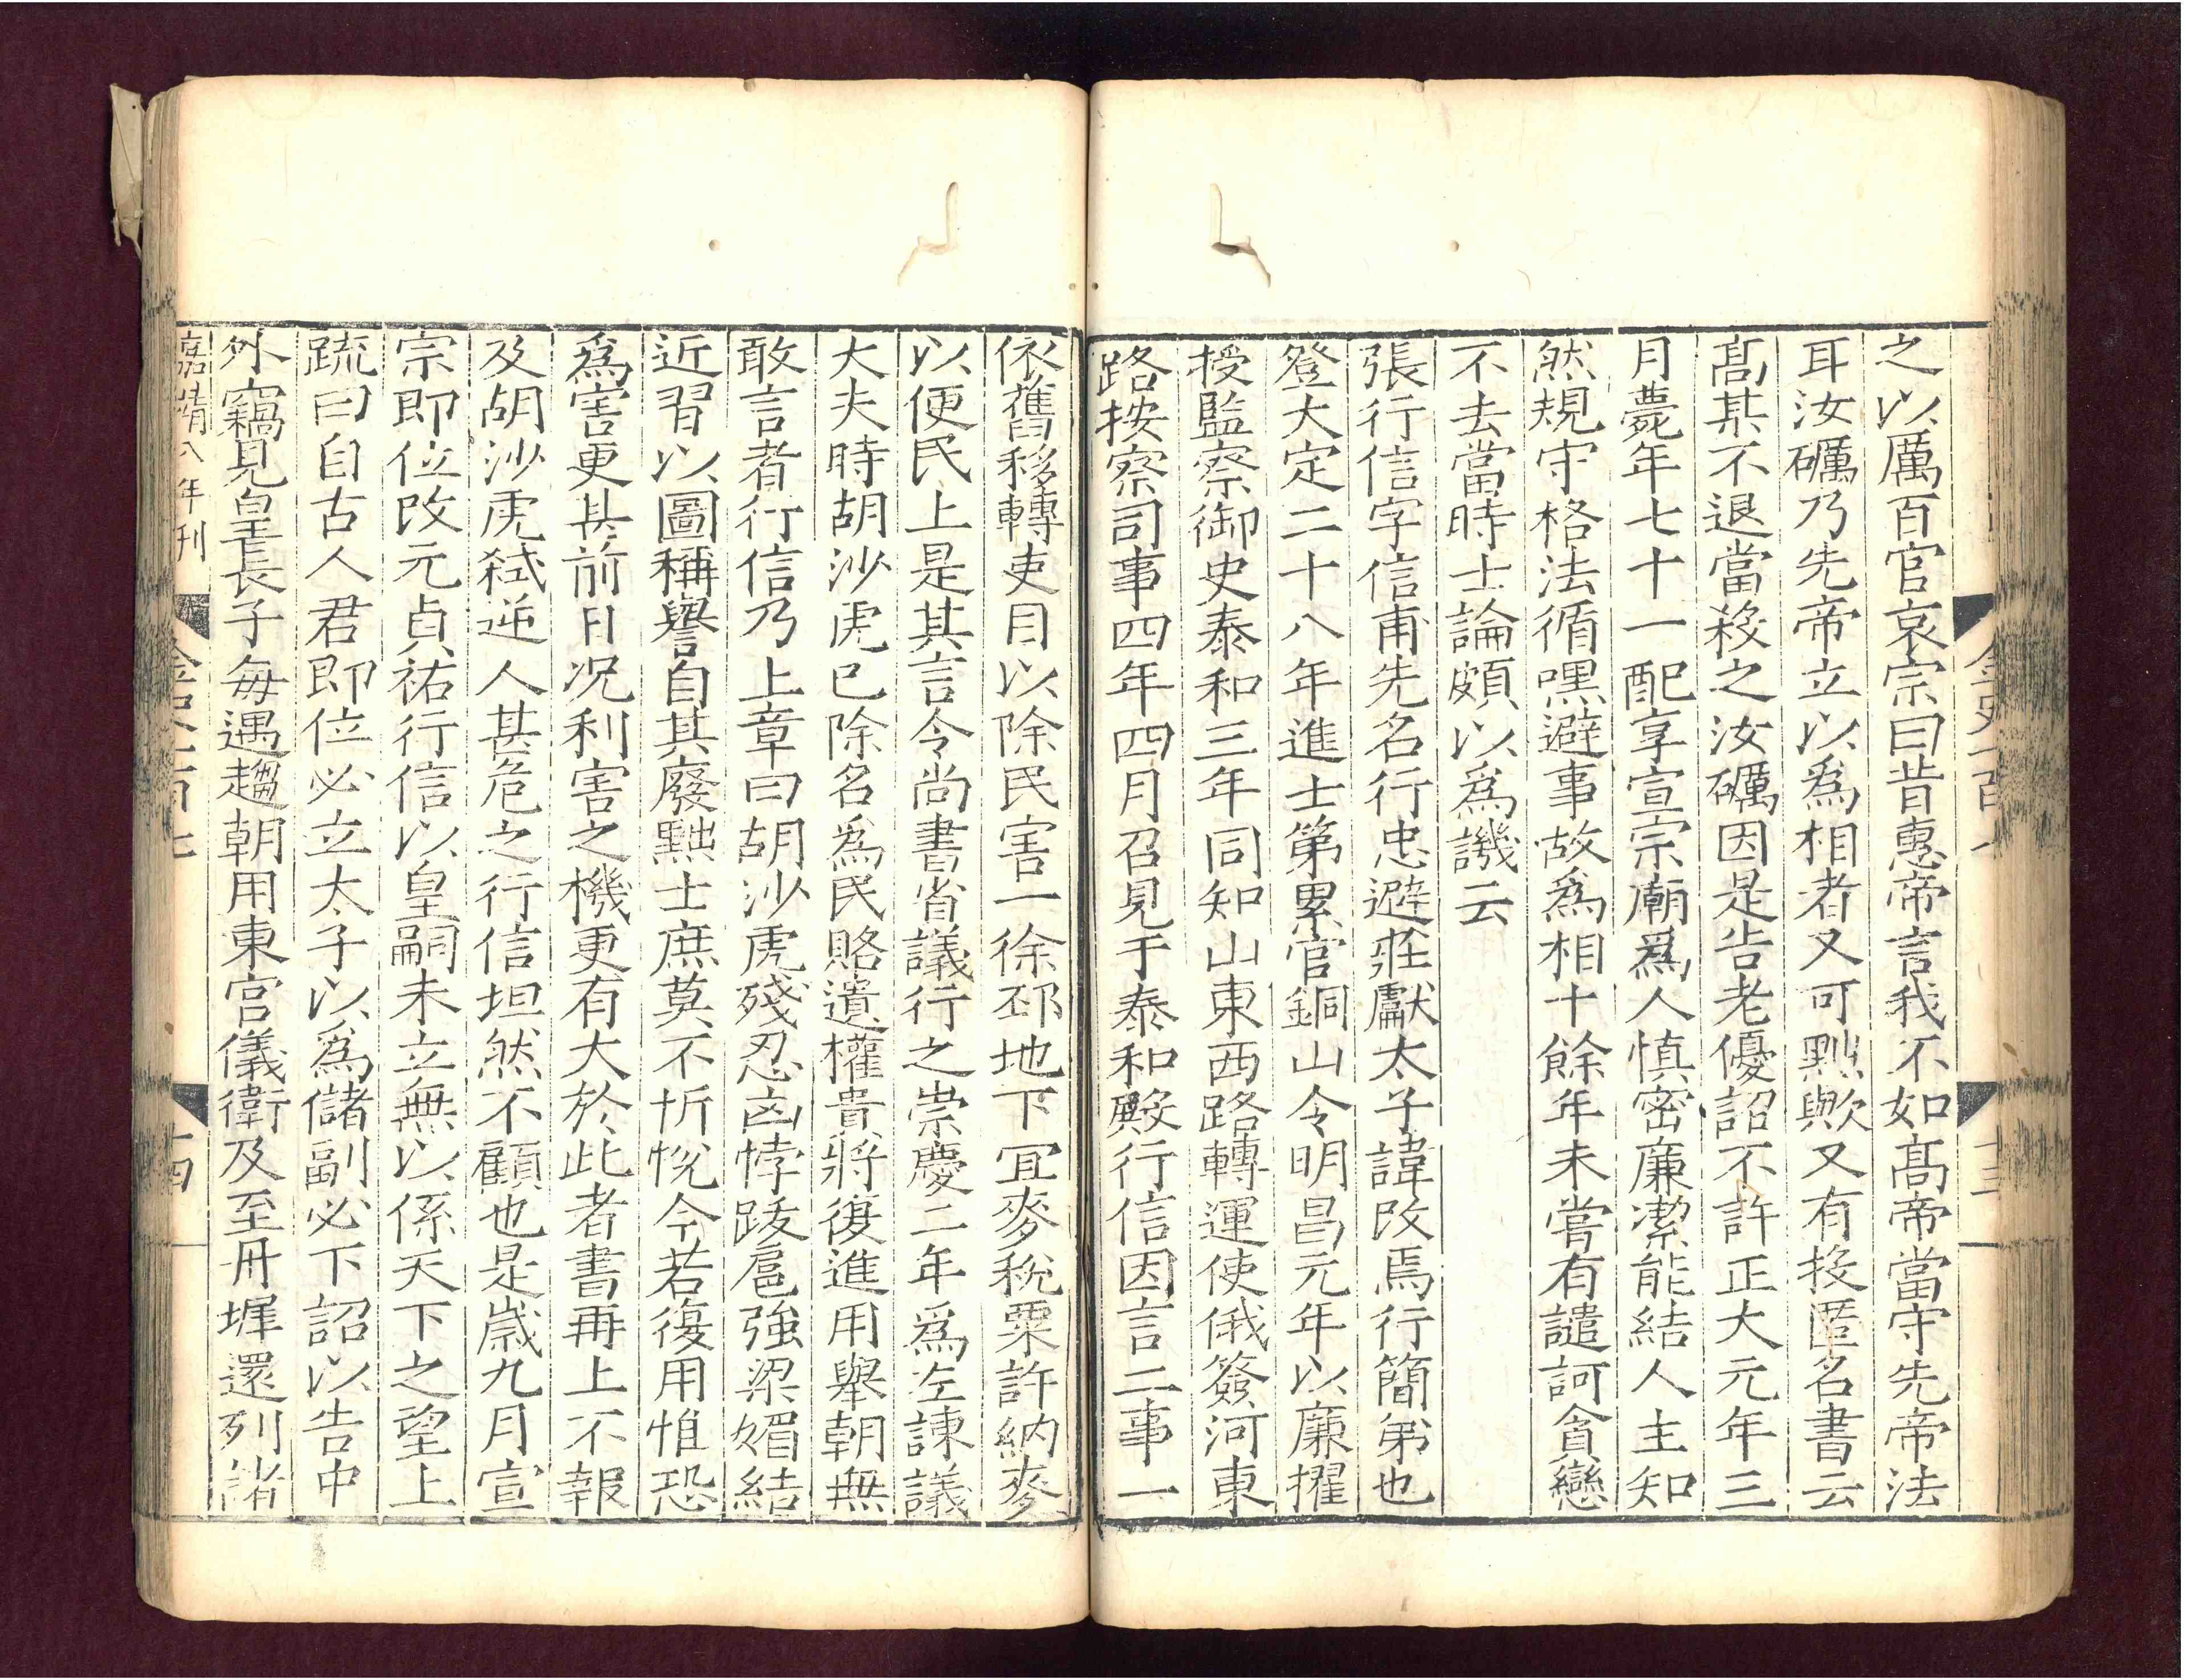 之以厲百官哀宗曰昔惠帝言我不如髙帝當守先帝法
耳汝礪乃先帝立以爲相者又可黜歟又有投匿名書云
髙其不退當殺之汝礪因是告老優詔不許正大元年三
月薨年七十一配享宣宗廟爲人慎密廉潔能結人主知
然規守格法循嘿避事故爲相十餘年未嘗有譴訶貪戀
不去當時士論頗以爲譏云
張行信字信甫先名行忠避莊獻太子諱改焉行簡弟也
登大定二十八年進士第累官銅山令明昌元年以廉擢
授監察御史泰和三年同知山東西路轉運使俄簽河東
路按察司事四年四月召見于泰和殿行信因言二事一
依舊移轉吏目以除民害一徐邳地下宜麥稅粟許納麥
以便民上是其言令尚書省議行之崇慶二年爲左諫議
大夫時胡沙虎已除名爲民賂遺權貴將復進用舉朝無
敢言者行信乃上章曰胡沙虎殘忍凶悖跋扈強梁媚結
近習以圖稱譽自其廢黜士庶莫不忻恱今若復用惟恐
爲害更甚前日况利害之機更有大於此者書再上不報
及胡沙虎弑逆人甚危之行信坦然不顧也是嵗九月宣
宗即位改元貞祐行信以皇嗣未立無以係天下之望上
疏曰自古人君即位必立太子以爲儲副必下詔以告中
外竊見皇長子每遇趨朝用東宮儀衛及至丹墀還列諸
嘉靖八年刊
金史一百七
十四